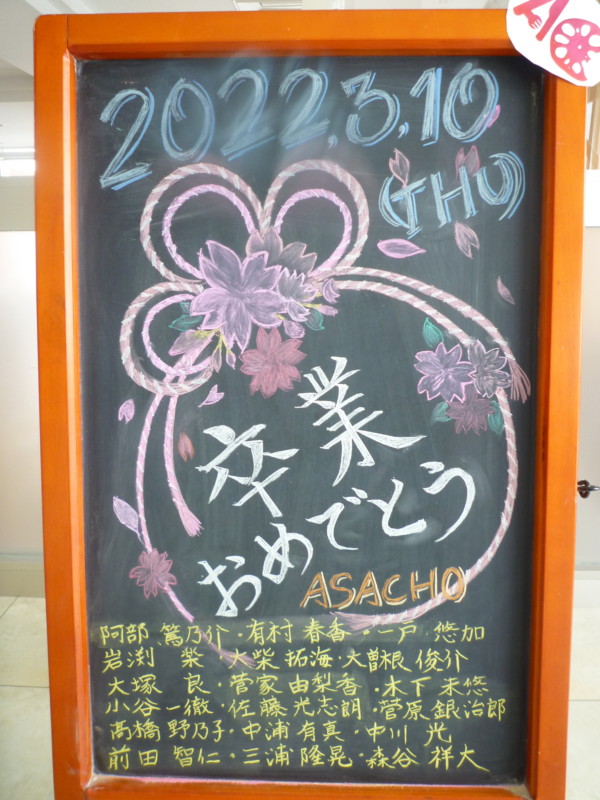 2022,3,10
(THU)
卒業
おめでとう
ASACHO
阿部 篤乃介・有村 春香・一戸 悠加
岩渕 栞・大柴 拓海・大曽根 俊介
大塚 良・菅家 由梨香・木下 未悠
小谷 一徹・佐藤 光志朗・菅原 銀治郎
高橋 野乃子・中浦 有真・中川 光
前田 智仁・三浦 隆晃・森谷 祥大